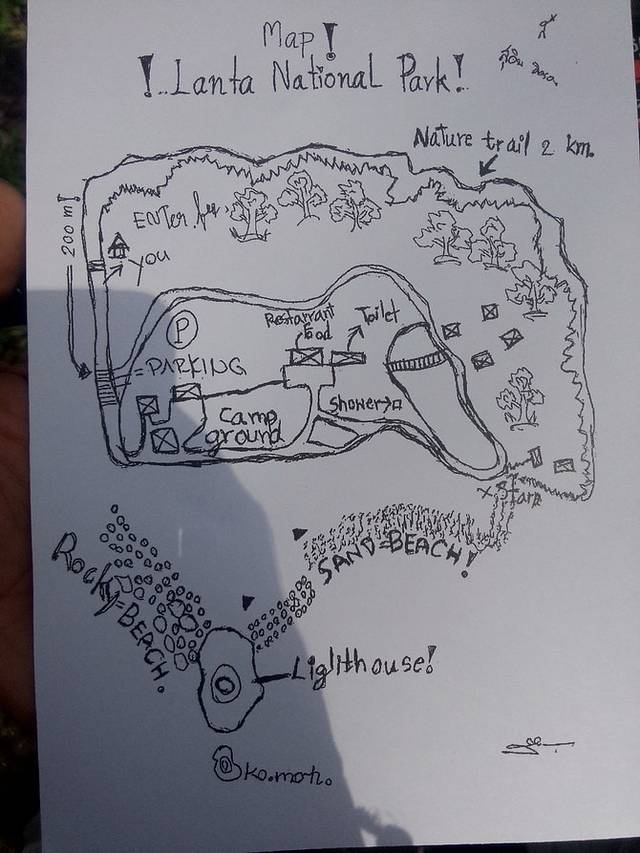 Map!
!..Lanta National Park!..
Nature trail 2 km.
200 m!
YOU
P
=PARKING
Restaurant
Food
Toilet
Camp
ground
Shower→
SAND=BEACH!
Rocky=BEACH.
Liglithouse!
ko.moh.